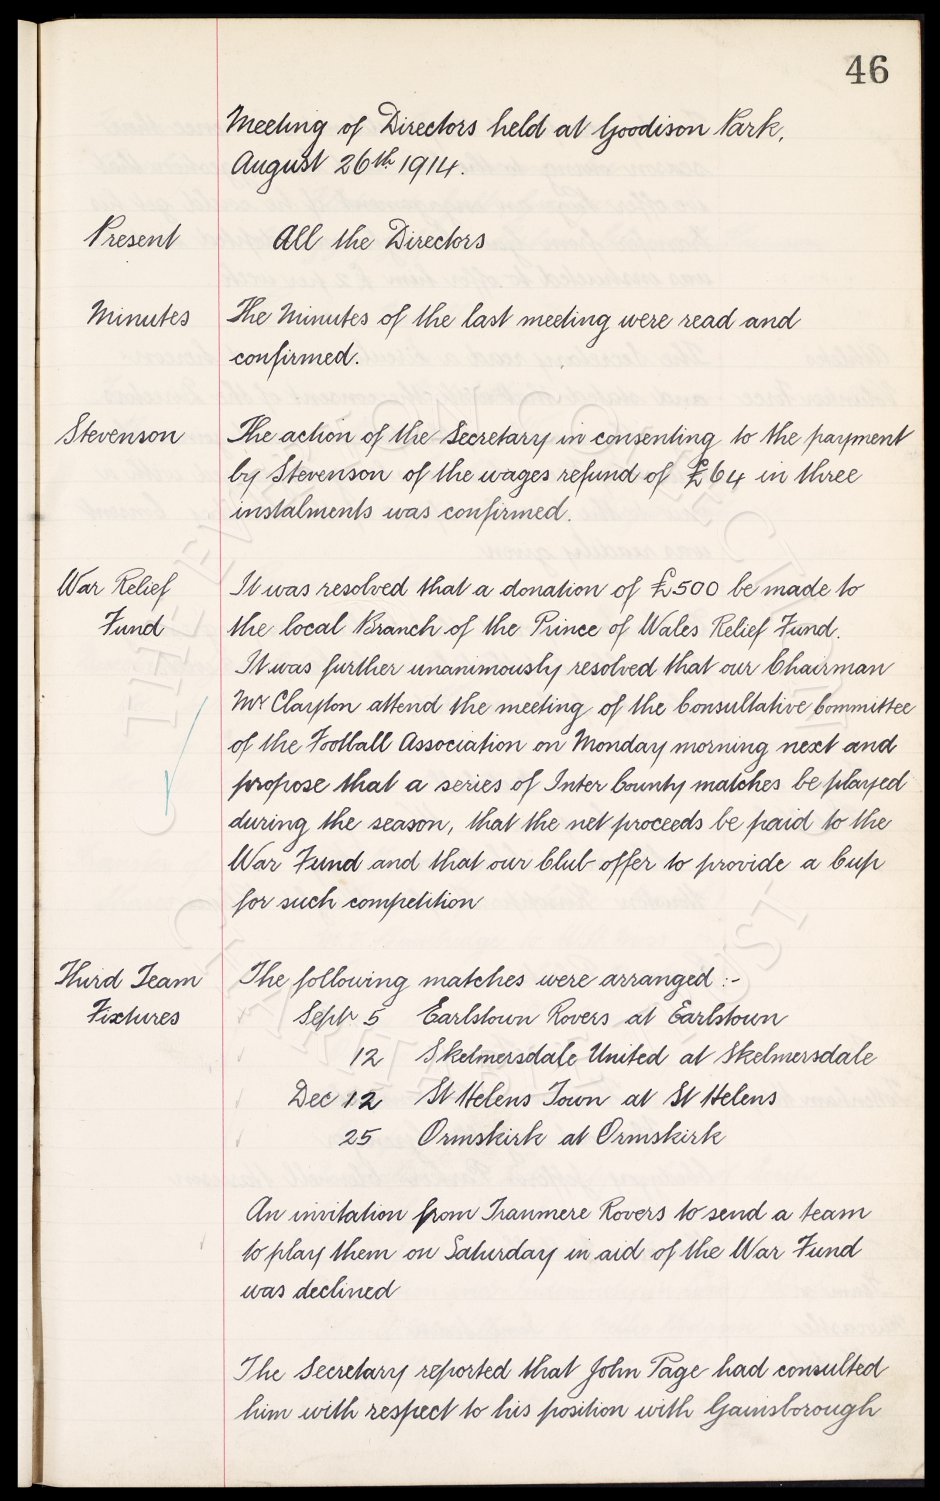 46
Meeting of Directors held at Goodison Park,
August 26th 1914.
Present All the Directors
Minutes The Minutes of the last meeting were read and
confirmed.
Stevenson The action of the Secretary in consenting to the payment
by Stevenson of the wages refund of £64 in three
instalments was confirmed.
War Relief It was resolved that a donation of £500 be made to
Fund the local Branch of the Prince of Wales Relief Fund.
It was further unanimously resolved that our Chairman
Mr Clayton attend the meeting of the Consultative Committee
of the Football Association on Monday morning next and
propose that a series of Inter County matches be played
during the season, that the net proceeds be paid to the
War Fund and that our Club offer to provide a Cup
for such competition
Third Team The following matches were arranged :-
Fixtures Sept 5 Earlstown Rovers at Earlstown
12 Skelmersdale United at Skelmersdale
Dec 12 St Helens Town at St Helens
25 Ormskirk at Ormskirk
An invitation from Tranmere Rovers to send a team
to play them on Saturday in aid of the War Fund
was declined
The Secretary reported that John Page had consulted
him with respect to his position with Gainsborough